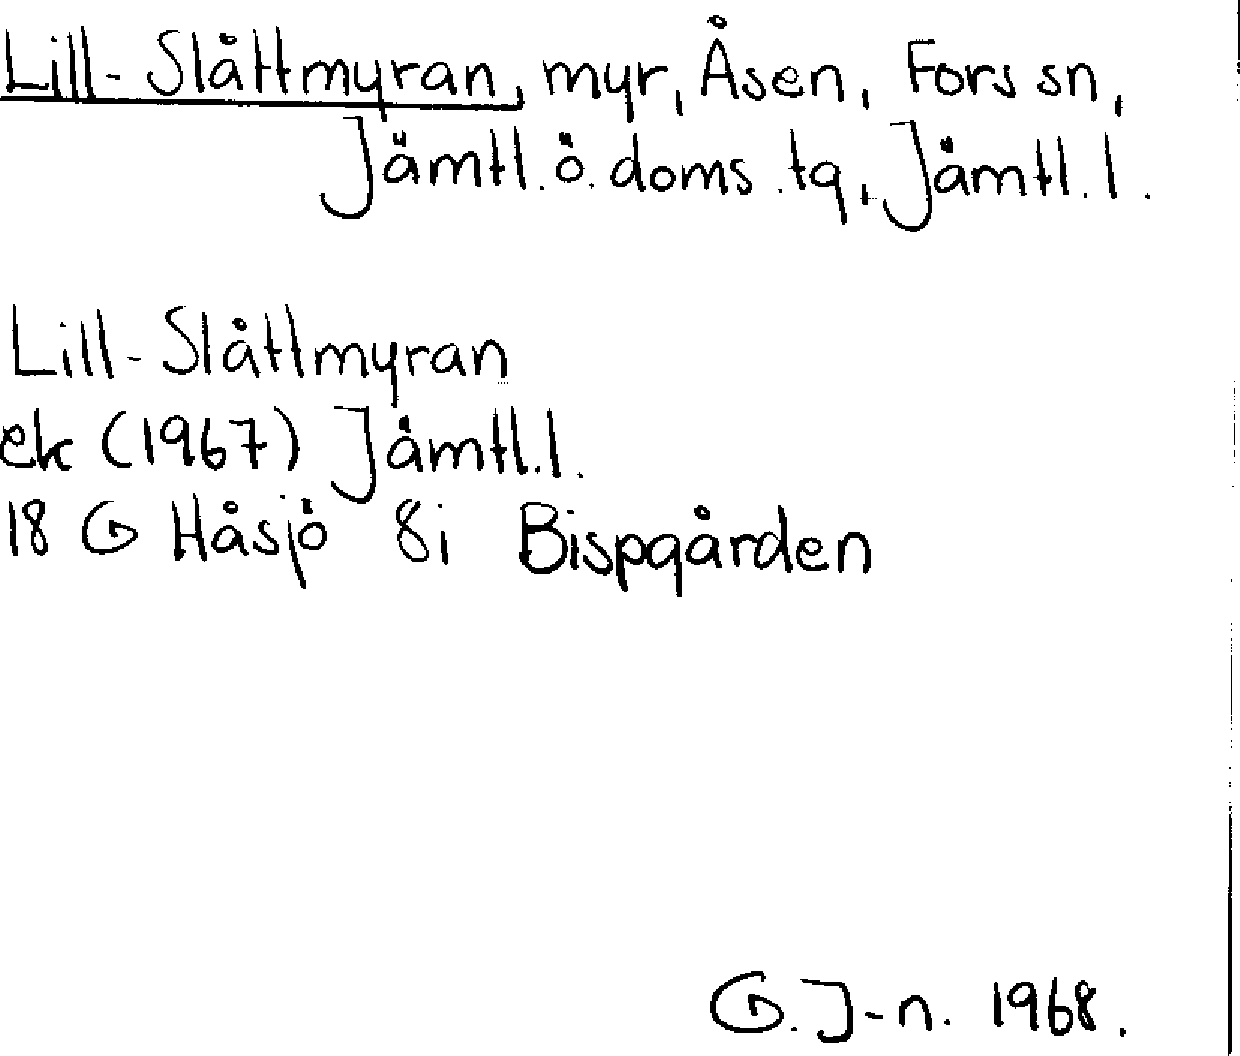 Lill-Slåttmyran, myr, Åsen, Fors sn,
Jämtl. ö. doms. tg, Jämtl. l.
Lill-Slåttmyran
ek (1967) Jämtl. l.
18 G Håsjö 8i Bispgården
G. J-n. 1968.